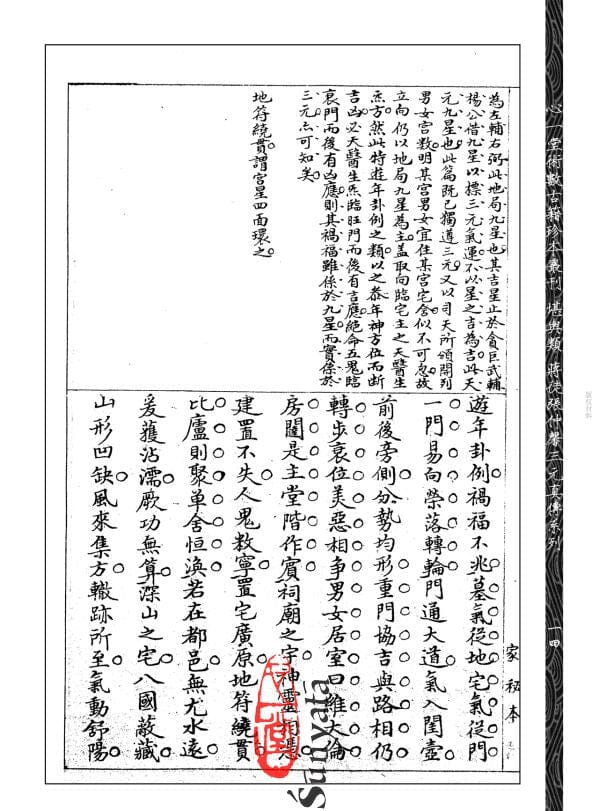 心一堂術數古籍珍本叢刊 堪輿類 蔣徒張仲馨三元真傳系列
一四
版权材料
為左輔右弼此地局九星也其吉星止於貪巨武輔
楊公借九星以標三元氣運不以星之吉為吉此天
元九星也此篇既已獨遵三元又以司天所頒開列
男女宮數明某宮男女宜住某宮宅舍似不可忽故
立向仍以地局九星為主蓋取向臨宅主之天醫生
炁方然此特遊年卦例之類以之叅年神方位而斷
吉凶必天醫生炁臨旺門而後有吉應絕命五鬼臨
衰門而後有凶應則其禍福雖係於九星而實係於
三元亦可知矣
地符繞貫謂宮星四面環之
遊年卦例禍福不兆墓氣從地宅氣從門
一門易向榮落轉輪門通大道氣入閨壼
前後旁側分勢均形重門協吉與路相仍
轉步衰位美惡相爭男女居室曰維大倫
房闥是主堂階作賓祠廟之宇神靈相憑
建置不失人鬼教寧置宅廣原地符繞貫
比廬則聚单舍恒渙若在都邑無尤水遠
爰獲沾濡厥功無算深山之宅八國蔽藏
山形凹缺風來集方轍跡所至氣動舒陽
家秘本
心一堂
Śūnyatā